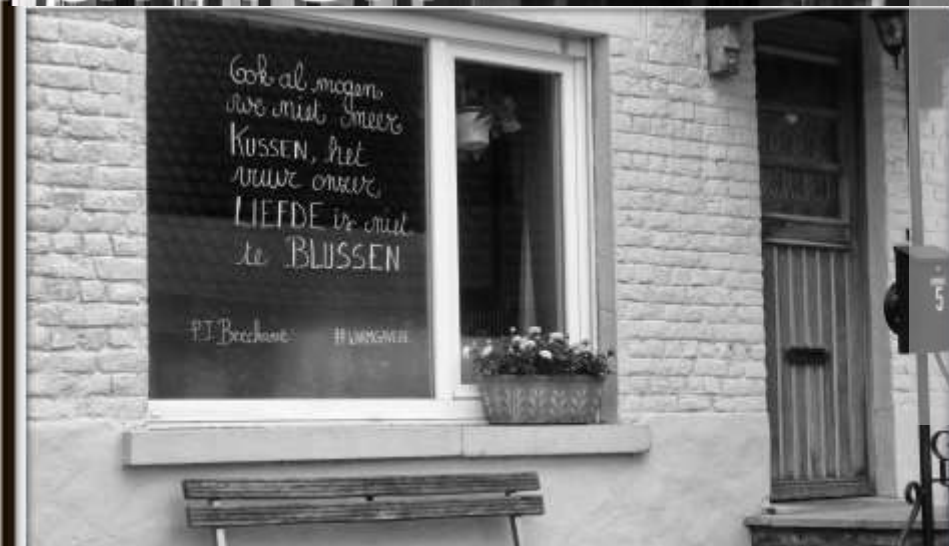 Ook al mogen
we niet meer
KUSSEN, het
vuur onzer
LIEFDE is niet
te BLUSSEN
P.J. #WARMGAVERE
5